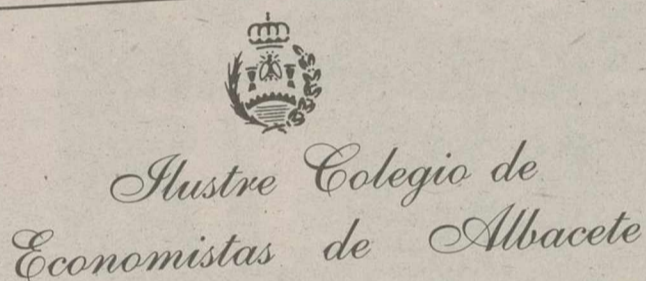 Ilustre Colegio de
Economistas de Albacete